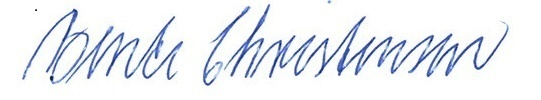 Bente Christensen